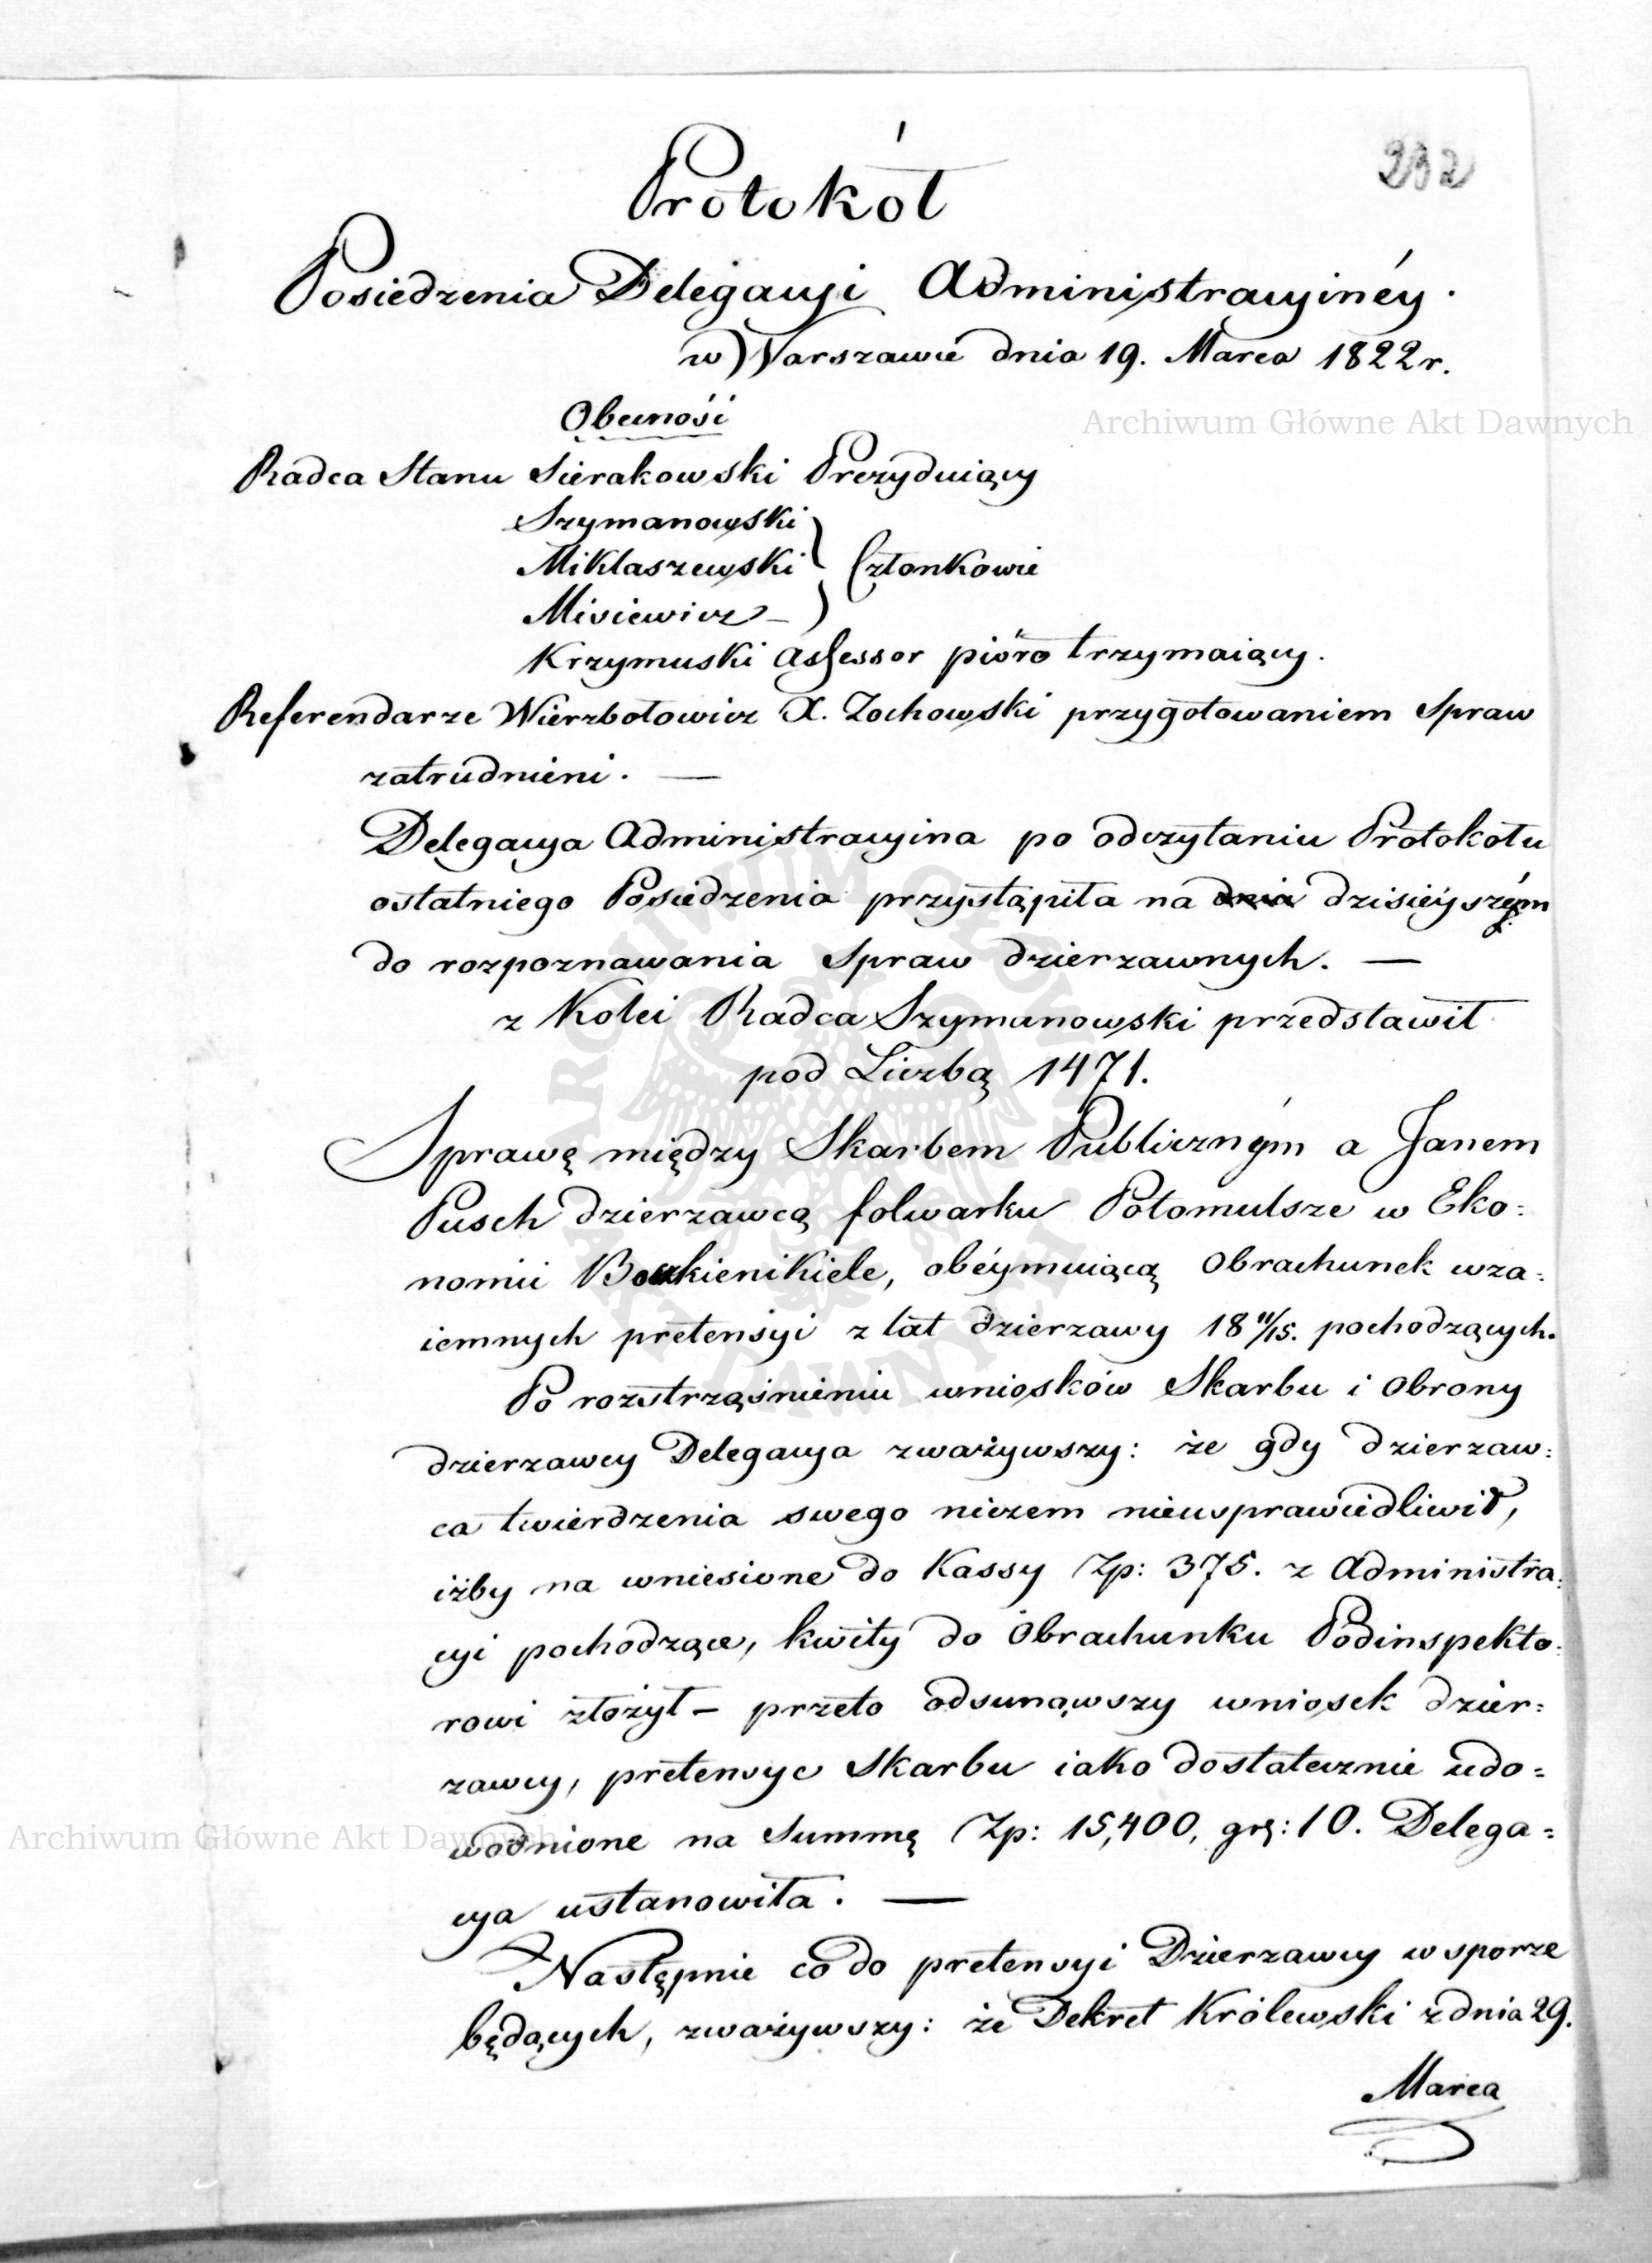 232
Protokół
Posiedzenia Delegacyi Administracyinéy.
w Warszawie dnia 19. Marca 1822 r.
Obecności
Radca Stanu Sierakowski Prezyduiący
Szymanowski
Miklaszewski } Członkowie
Misiewicz –
Krzymuski Assessor pióro trzymaiący.
Referendarze Wierzbołowicz X. Zochowski przygotowaniem Spraw
zatrudnieni. —
Delegacya Administracyina po odczytaniu Protokołu
ostatniego Posiedzenia przystąpiła na dniu dzisiéyszym
do rozpoznawania Spraw dzierzawnych. —
z Kolei Radca Szymanowski przedstawił
pod Liczbą 1471.
Sprawę między Skarbem Publicznym a Janem
Pusch dzierzawcą folwarku Potomulsze w Eko:
nomii Boukienikiele, obéymuiącą Obrachunek wza:
iemnych pretensyi z lat dzierzawy 18 11/15. pochodzących.
Po rozstrząśnieniu wniosków Skarbu i Obrony
dzierzawcy Delegacya zważywszy: że gdy dzierzaw:
ca twierdzenia swego niczem nieusprawiedliwił,
iżby na wniesione do Kassy Zp: 375. z Administra:
cyi pochodzące, kwity do Obrachunku Podinspekto:
rowi złożył – przeto odsunąwszy wniosek dzier:
zawcy, pretensye Skarbu iako dostatecznie udo:
wodnione na Summę Zp: 15,400, gr: 10. Delega:
cya ustanowiła. —
Następnie co do pretensyi Dzierzawcy w sporze
będących, zważywszy: że Dekret Królewski z dnia 29.
Marca
Archiwum Główne Akt Dawnych
Archiwum Główne Akt Dawnych
ARCHIWUM GŁÓWNE AKT DAWNYCH